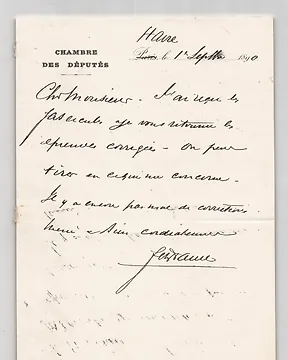 Havre
CHAMBRE
DES DÉPUTÉS
Paris, le 1er Septbre 1890
Cher Monsieur - J'ai reçu les
fascicules et je vous retourne les
épreuves corrigées - on peut
tirer en ce qui me concerne.
Il y a encore pas mal de corrections.
Merci et bien cordialement